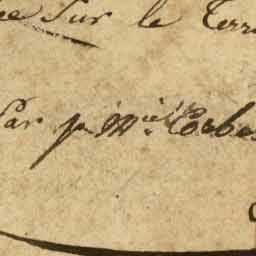 Sur le Terr
Par p. Mie. Corbe